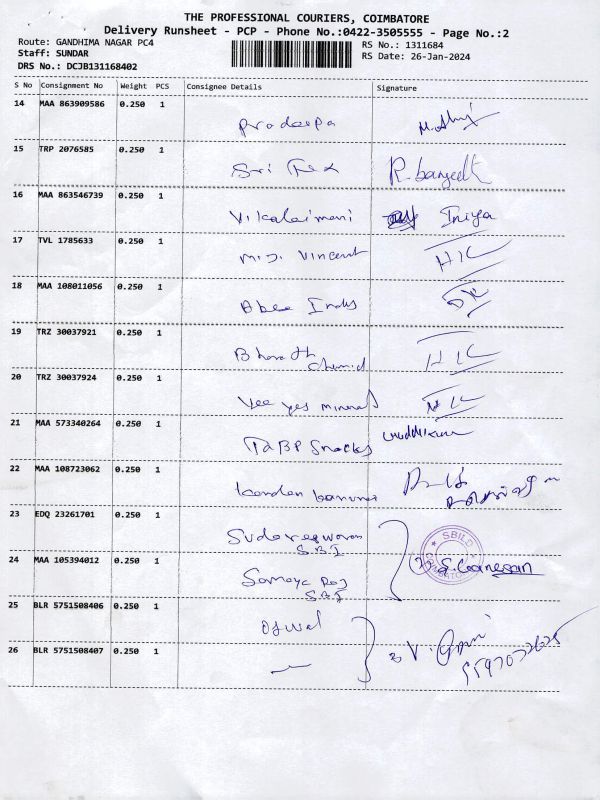 THE PROFESSIONAL COURIERS, COIMBATORE
Delivery Runsheet - PCP - Phone No.:0422-3505555 - Page No.:2
Route: GANDHIMA NAGAR PC4
Staff: SUNDAR
DRS No.: DCJB131168402
RS No.: 1311684
RS Date: 26-Jan-2024
S No Consignment No Weight PCS Consignee Details Signature
14 MAA 863909586 0.250 1
Pradeepa
15 TRP 2076585 0.250 1
Sri
16 MAA 863546739 0.250 1
V. Kalaimani Iniya
17 TVL 1785633 0.250 1
M.J. Vincent
18 MAA 108011056 0.250 1
Abee Inds
19 TRZ 30037921 0.250 1
Bharath
Chemid
20 TRZ 30037924 0.250 1
Vee yes minerals
21 MAA 573340264 0.250 1
TABP Snacks
22 MAA 108723062 0.250 1
23 EDQ 23261701 0.250 1
Sudareswaran
S.B.I
SBILD
24 MAA 105394012 0.250 1
S. Ganesan
Samaya Raj
SBI
25 BLR 5751508406 0.250 1
Oswal
26 BLR 5751508407 0.250 1